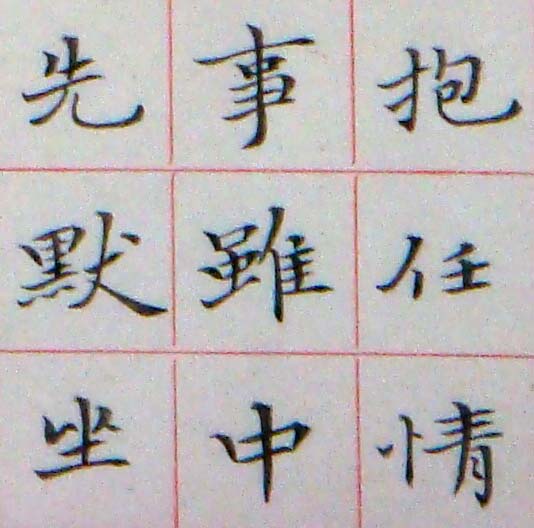 抱任情
事雖中
先默坐